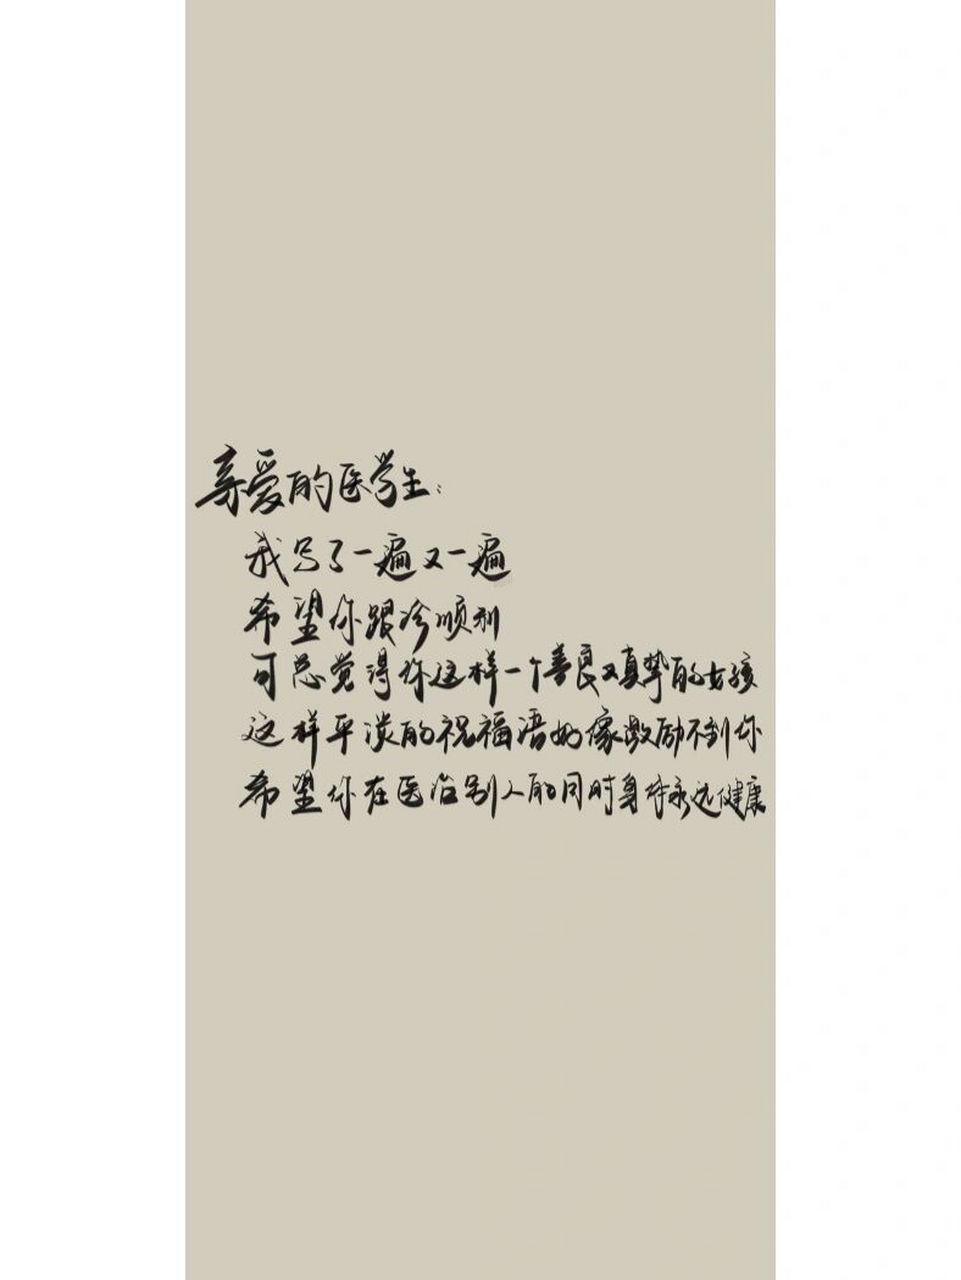 亲爱的医学生：
我写了一遍又一遍
希望你跟诊顺利
可总觉得你这样一个善良又真挚的女孩
这样平淡的祝福语好像激励不到你
希望你在医治别人的同时身体永远健康